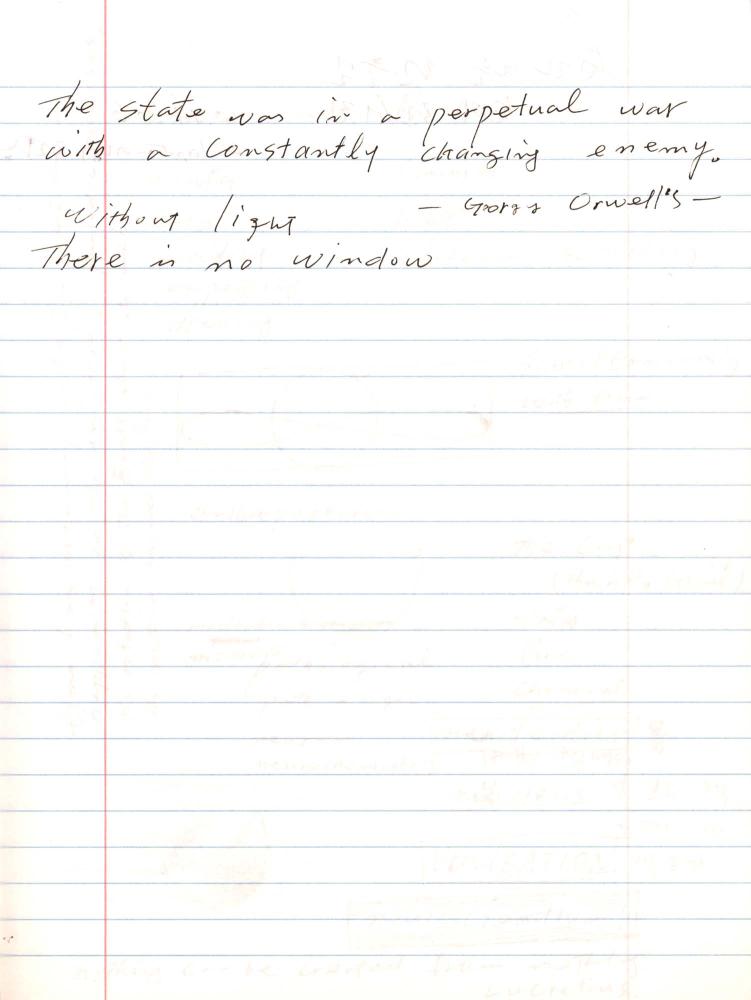 The state was in a perpetual war
with a constantly changing enemy.
— George Orwell's —
Without light
There is no window